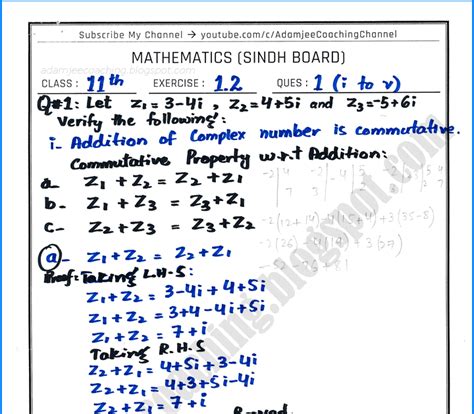 Subscribe My Channel → youtube.com/c/AdamjeeCoachingChannel
MATHEMATICS (SINDH BOARD)
adamjeecoaching.blogspot.com
CLASS: 11th EXERCISE: 1.2 QUES: 1 (i to v)
Q#1: Let Z₁ = 3-4i, Z₂=4+5i and Z₃=-5+6i
Verify the following:
i- Addition of Complex number is commutative.
Commutative Property w.r.t Addition:
a- Z₁ + Z₂ = Z₂ + Z₁
b- Z₁ + Z₃ = Z₃ + Z₁
c- Z₂ + Z₃ = Z₃ + Z₂
(a)- Z₁ + Z₂ = Z₂ + Z₁
Proof: Taking L.H.S:
Z₁ + Z₂ = 3-4i + 4+5i
Z₁ + Z₂ = 3+4 -4i+5i
Z₁ + Z₂ = 7+i
Taking R.H.S
Z₂ + Z₁ = 4+5i+3-4i
Z₂ + Z₁ = 4+3+5i-4i
Z₂ + Z₁ = 7+i
Proved